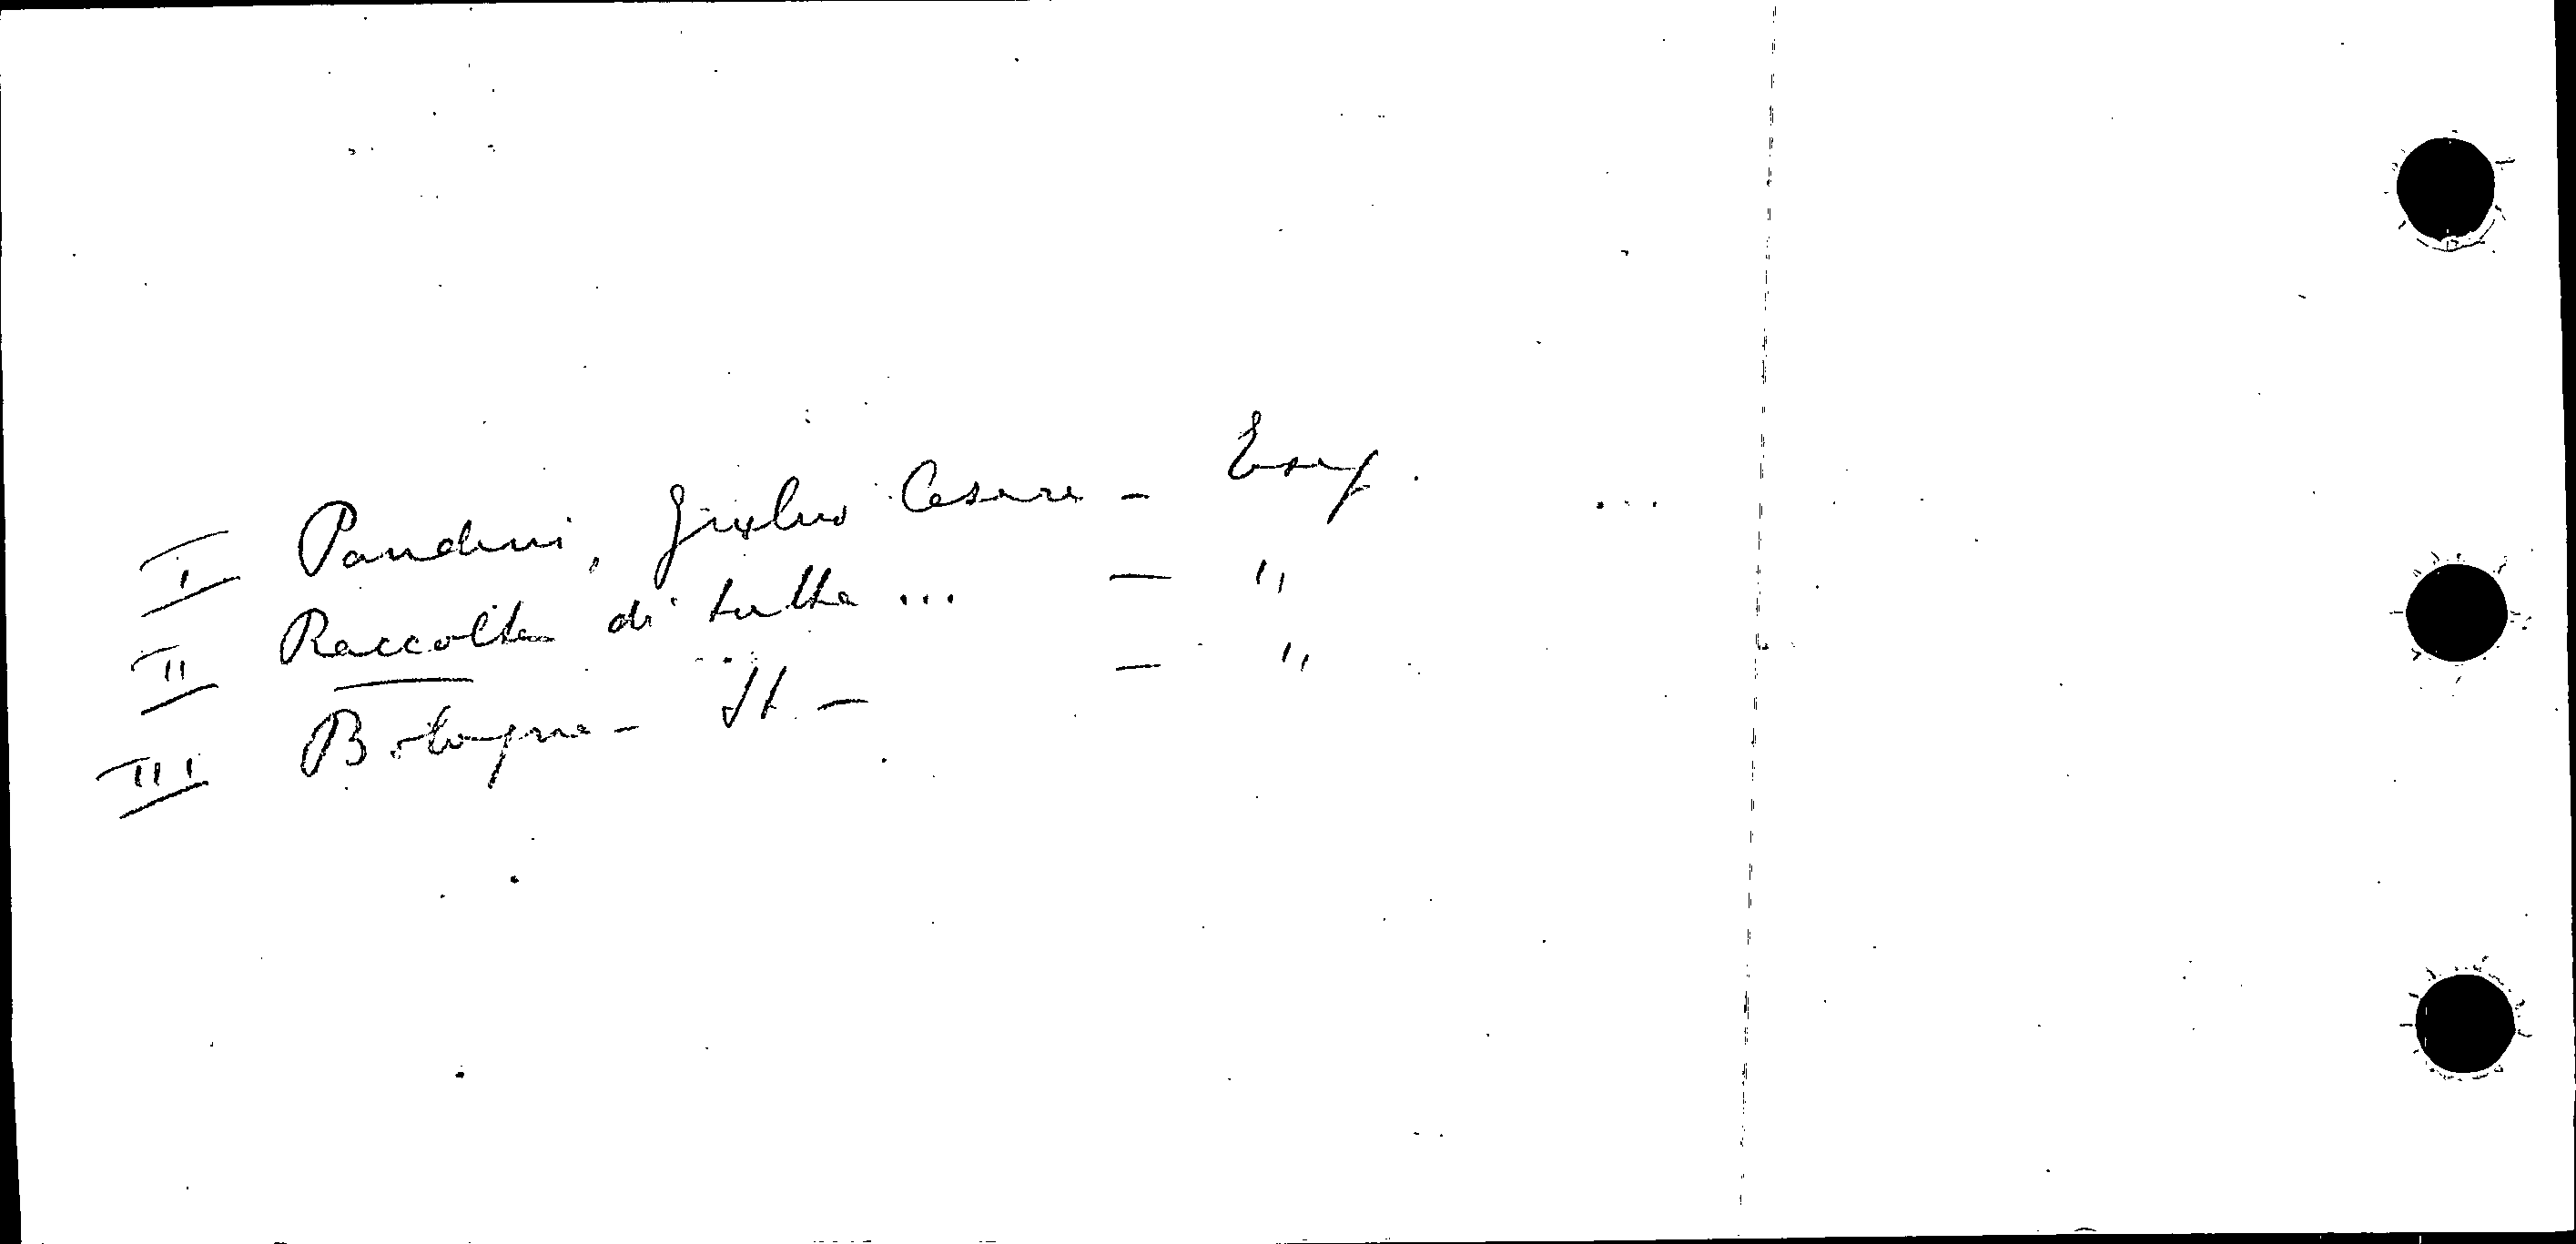 I Pandini, Giulio Cesare - Esy.
II Raccolta di tutta ... - "
III Bologna - It - - "